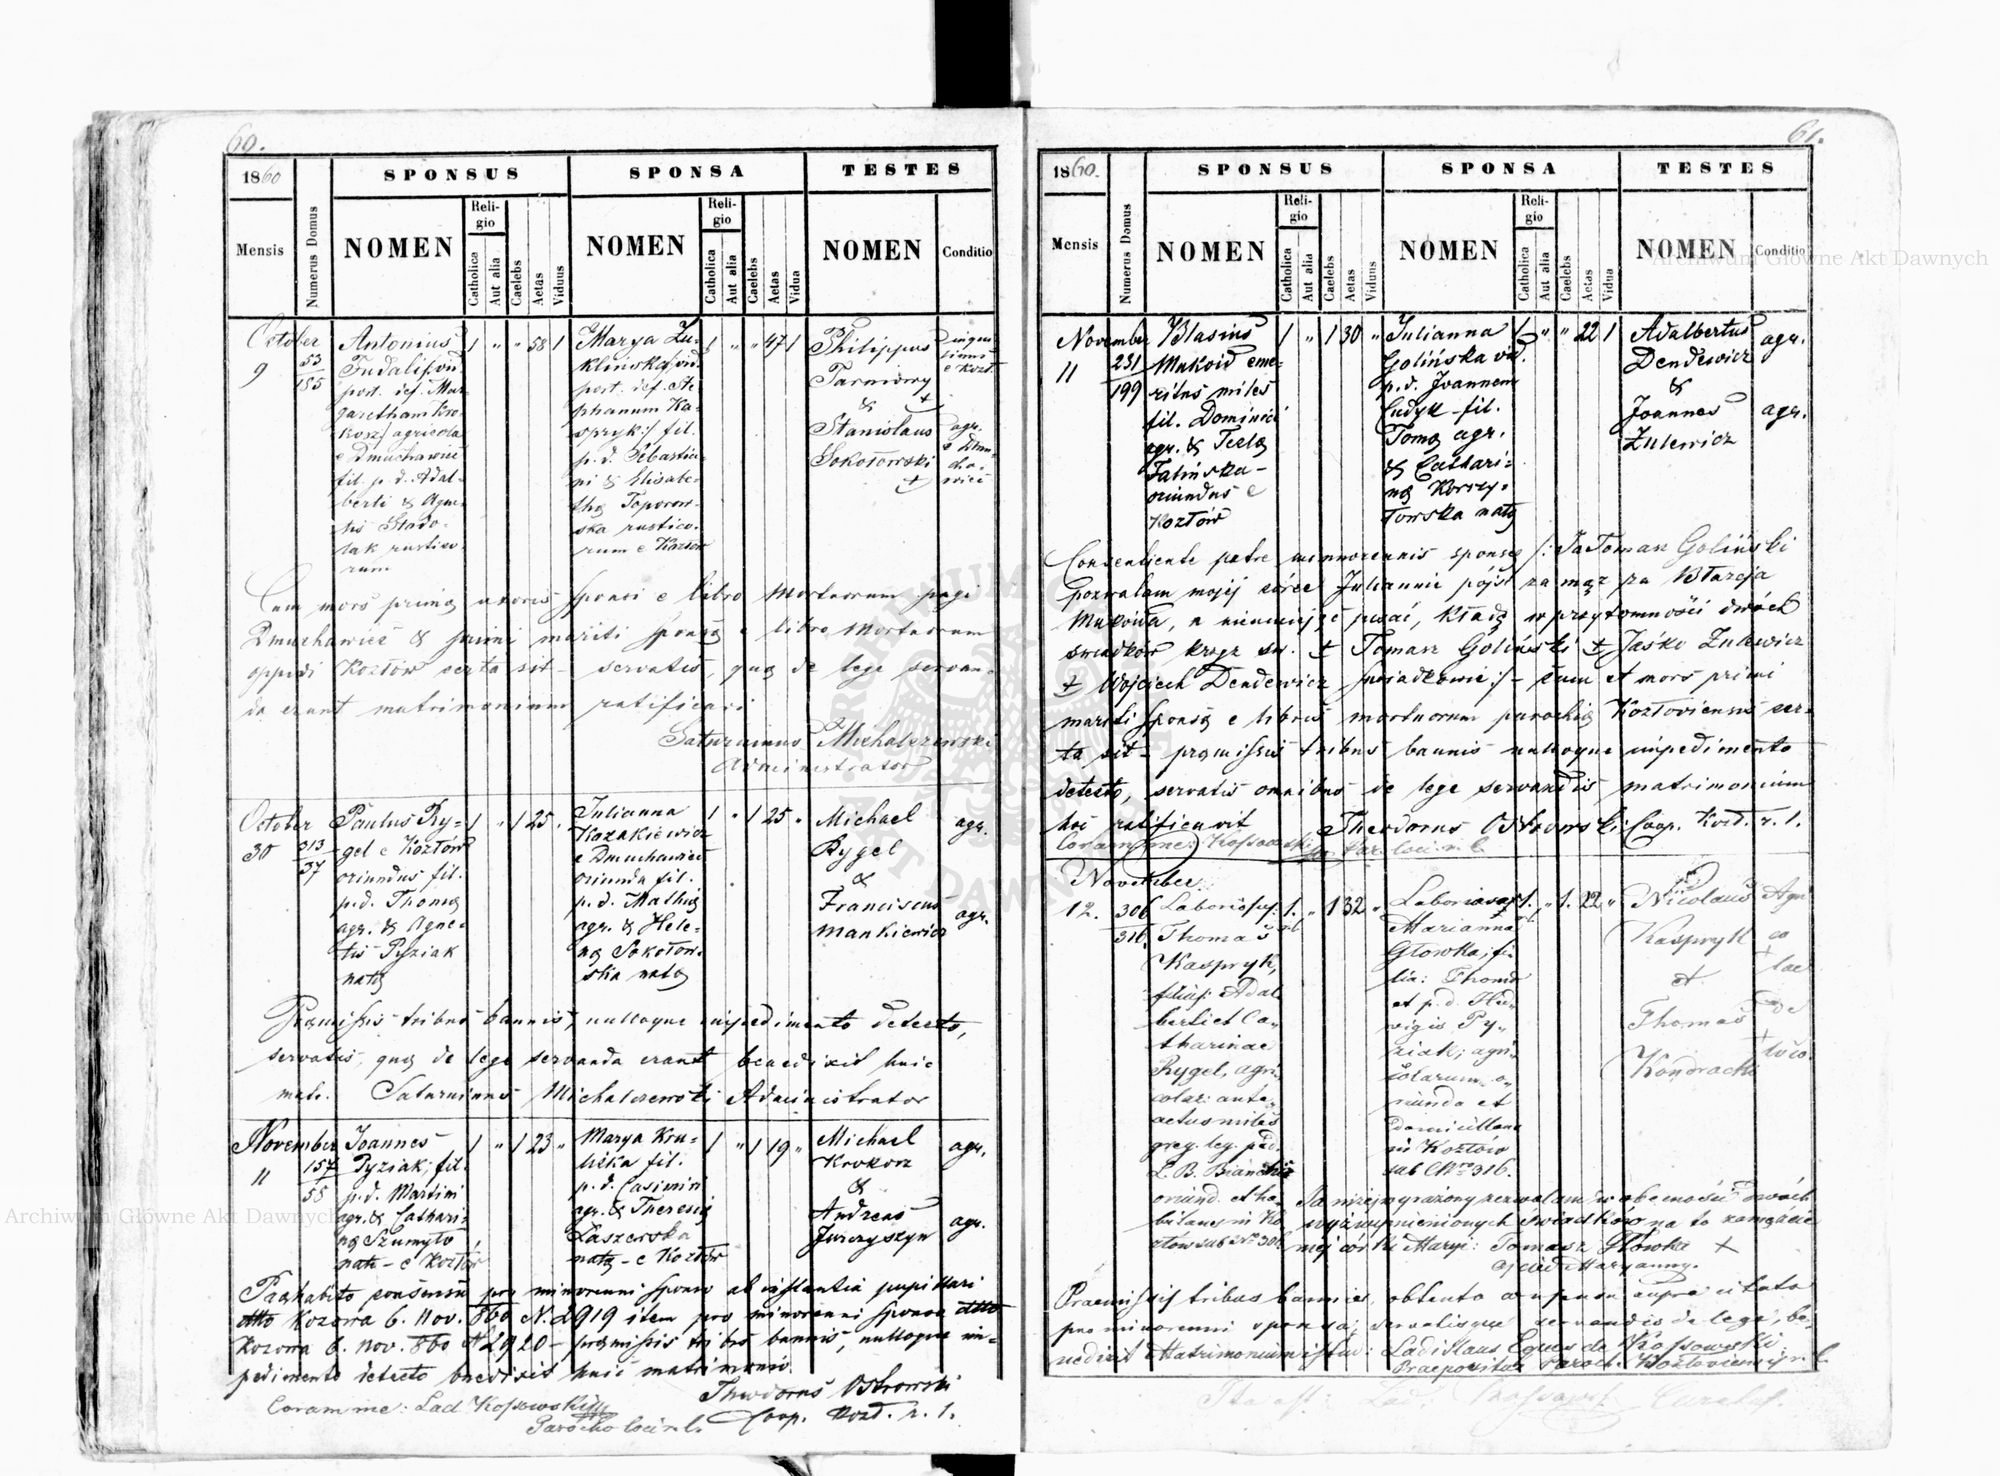 60.
1860
SPONSUS
SPONSA
TESTES
Mensis
Numerus Domus
NOMEN
Religio
Catholica
Aut alia
Caelebs
Aetas
Viduus
NOMEN
Religio
Catholica
Aut alia
Caelebs
Aetas
Vidua
NOMEN
Conditio
October
9
53
185
Antonius
vid.
post. def. Mar-
garetham Kro-
kosz/ agricola
e Dmuchawiec
fil. p. d. Adal-
berti & Agne-
tis
lak rustico-
rum
1 " " 58 1
Marya Zu-
klinska/vid.
post. def. Ste-
phanum Ka-
spryk:/ fil.
p. d. Sebastia-
ni & Elisabe-
tha Toporow-
ska rustico-
rum e Kozłow
1 " " 47 1
Philippus
Tarnowy
+
&
Stanislaus
Sokołowski
+
e Kozł.
agr.
e Dmu-
cha-
wiec
Cum mors primæ uxoris sponsi e libro Mortuorum pagi
Dmuchawiec & primi mariti sponsæ e libro Mortuorum
oppidi Kozłów certa sit – servatis, quæ de lege servan-
da erant matrimonium ratificavi
Saturninus Michalczewski
Administrator
October
30
313
37
Paulus Ry-
gel e Kozłów
oriundus fil.
p.d. Thomæ
agr. & Agne-
tis Pyziak
natæ
1 " 1 25 "
Julianna
Kozakiewicz
e Dmuchawiec
oriunda fil.
p. d. Mathiæ
agr. & Hele-
næ Sokołow-
ska natæ
1 " 1 25 "
Michael
Rygel
&
Franciscus
Mankiewicz
agr.
agr.
Præmissis tribus bannis, nulloque impedimento detecto,
servatis, quæ de lege servanda erant benedixit huic
matr. Saturninus Michalczewski Administrator
November
11
157
55
Joannes
Pyziak; fil.
p. d. Martini
agr. & Cathari-
næ Szumyło
natæ – e Kozłów
1 " 1 23 "
Marya Kru-
fil.
p. d. Casimiri
agr. & Theresiæ
Łaszewska
natæ – e Kozłów
1 " 1 19 "
Michael
Krokosz
&
Andreas
Jurczyszyn
agr.
agr.
consensu pro minorenni sponso ab instantia pupillari
dtto Kozowa 6. Nov. 860 N. 2919 item pro minorenni sponsa dtto
Kozowa 6. Nov. 860 N 2920 – præmissis tribus bannis, nulloque im-
pedimento detecto benedixit huic matrimonio.
Theodorus Ostrowski
Coop. Kozł. r. l.
Coram me: Lad Kossowski
Parocho loci r. l.
61.
1860.
SPONSUS
SPONSA
TESTES
Mensis
Numerus Domus
NOMEN
Religio
Catholica
Aut alia
Caelebs
Aetas
Viduus
NOMEN
Religio
Catholica
Aut alia
Caelebs
Aetas
Vidua
NOMEN
Conditio
November
11
231
199
Blasius
Makoid eme-
ritus miles
fil. Dominici
agr. & Teclæ
Falińska –
oriundus e
Kozłów
1 " 1 30 "
Julianna
Golińska vid.
p. d. Joannem
Cudyk – fil.
Tomæ agr.
& Cathari-
næ Korzy-
towska natæ
1 " " 22 1
Adalbertus
Dendewicz
&
Joannes
Żulewicz
agr.
agr.
Consentiente patre minorennis sponsæ /: Ja Tomasz Goliński
pozwalam mojej córce Juliannie pójść za mąż za Błażeja
Makoida, a nieumiejąc pisać, kładę w przytomności dwóch
swiadków krzyż sw. + Tomasz Goliński + Jaśko Żulewicz
+ Wojciech Dendewicz swiadkowie:/ – cum et mors primi
mariti sponsæ e libris mortuorum parochiæ Kozłoviensis cer-
ta sit – præmissis tribus bannis nulloque impedimento
detecto, servatis omnibus de lege servandis, matrimonium
hoc ratificavit Theodorus Ostrowski Coop. Kozł. r. l.
Coram me: Kossowski Par. loci r. l.
November
12.
306
316.
Laboriosus
Thomas
Kaspryk,
filius: Adal-
berti et Ca-
tharinae
Rygel, agri-
colar: ante-
actus miles
greg. leg. ped.
L. B. Bianchi
oriund. et ha-
bitans in Ko-
złow sub Nro 306
1. " 1 32 "
Laboriosa
Marianna
Głowka; fi-
lia: Thomæ
et p. d. Hed-
wigis Py-
ziak; agri-
colarum o-
riunda et
domiciliana
in Kozłów
sub Nro 316.
1. " 1. 22 "
Nicolaus
Kaspryk
et
Thomas
+
Kondracki
Agri
co
lae
de
loco.
Ja niżej wyrażony zezwalam w obecności dwóch
wyżwymienionych świadków na to zamęście
mej córki Maryi: Tomasz Głowka +
ojciec Maryanny.
Praemissis tribus bannis, obtento consensu supra citato
pro minorenni sponsa; servatisque servandis de lege, be-
nedixit Matrimonium istud: Ladislaus Eques de Kossowski
Praepositus Paroch. Kozłoviensis r. l.
Ita est: Lad. Kossowski